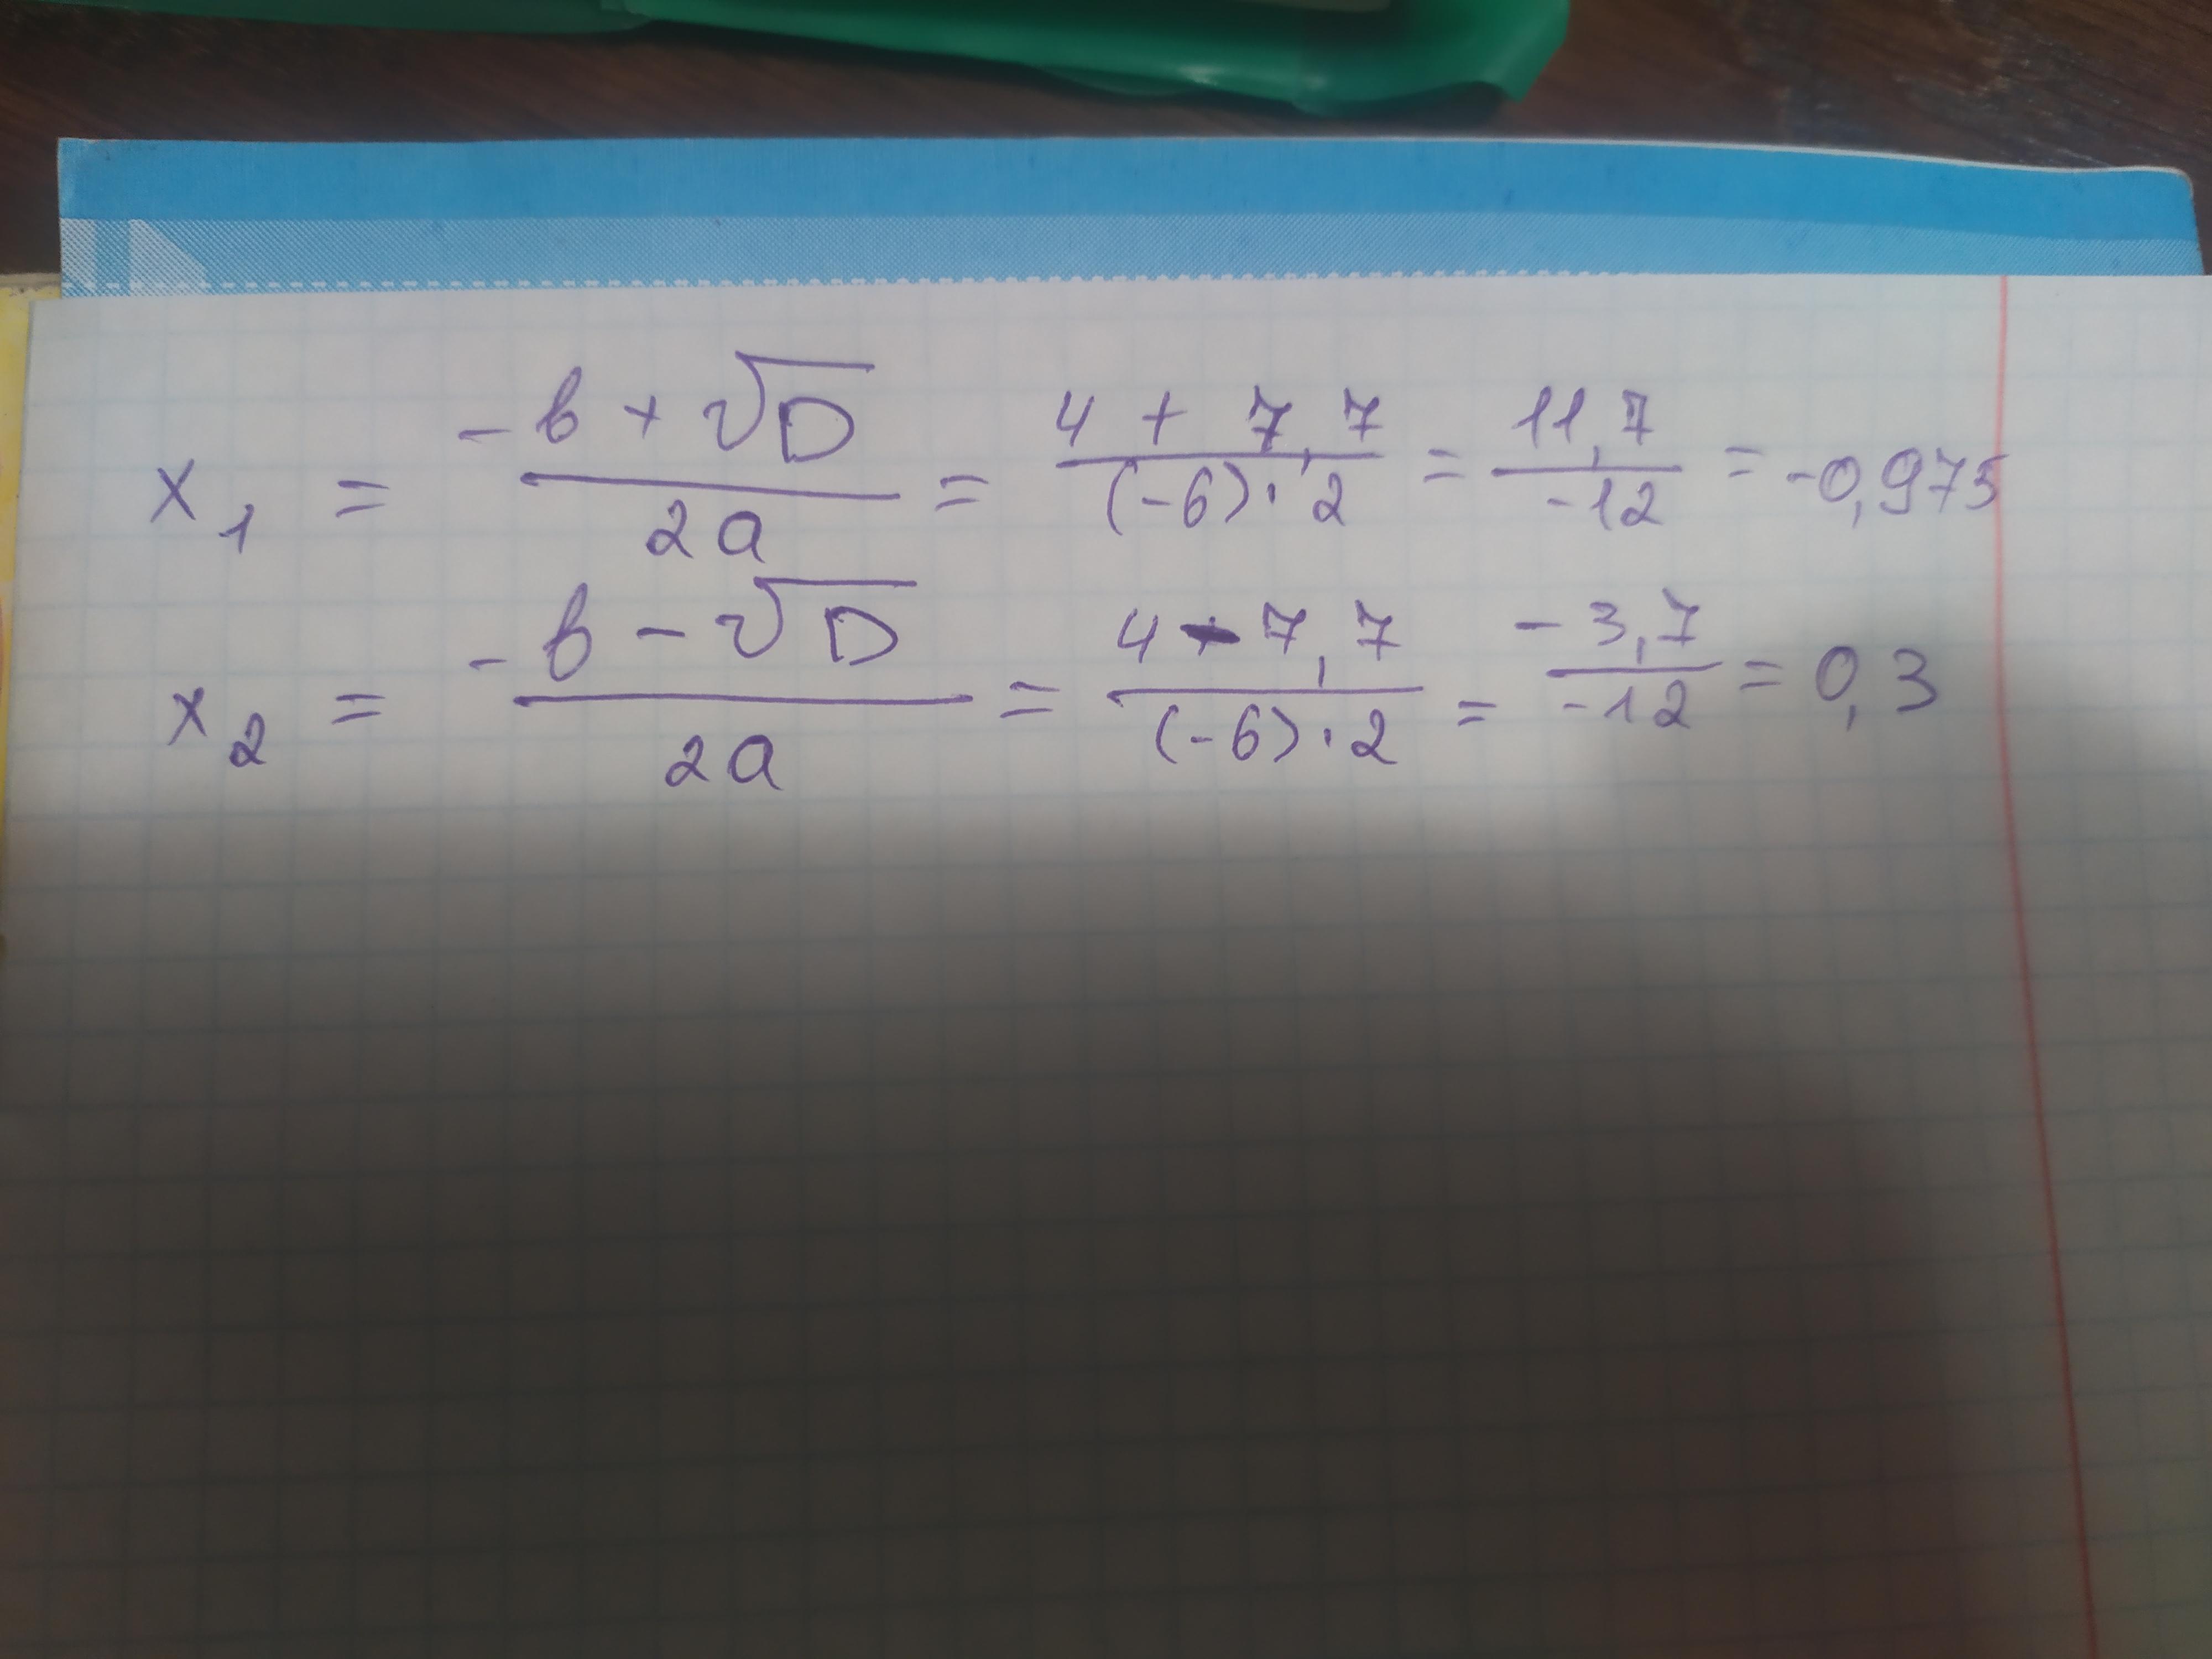 x₁ = (-b + √D)/(2a) = (4 + 7,7)/((-6)·2) = 11,7/-12 = -0,975
x₂ = (-b - √D)/(2a) = (4 - 7,7)/((-6)·2) = -3,7/-12 = 0,3